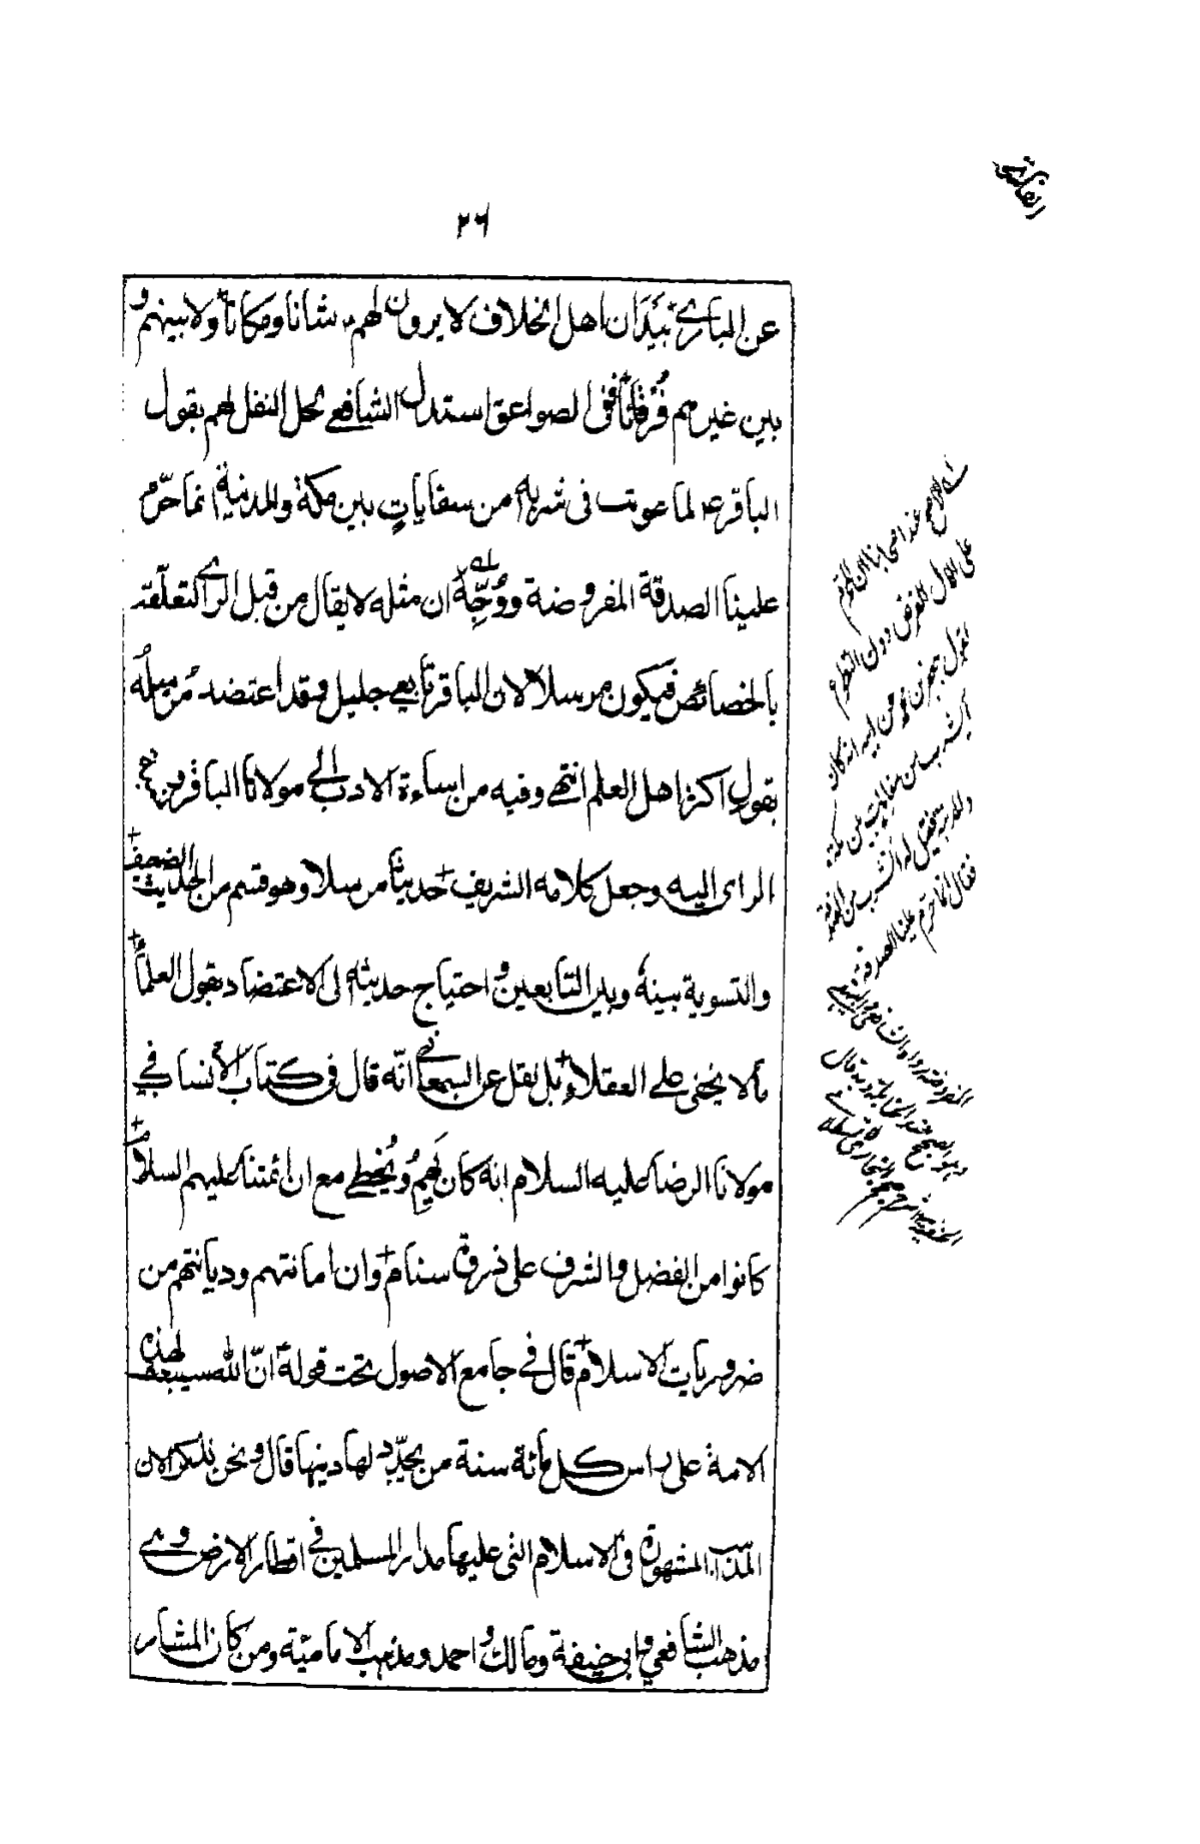 ٢٦
عن المبارى بيد ان اهل الخلاف لا يرون لهم شانا ومكانا ولا بينهم و
بين غيرهم فُرقانًا ففى الصواعق استدل الشافعي لحل النفل لهم بقول
الباقرء لما عوتب فى شربه من سقاياتٍ بين مكة والمدينة انما حرّم
علينا الصدقة المفروضة ووُجِّهَ ان مثله لا يقال من قبل الراى لتعلّقه
بالخصائص فيكون مرسلا لان الباقر تابعي جليل وقد اعتضد مُرسلُه
بقول اكثر اهل العلم انتهى وفيه من اساءة الادب الى مولانا الباقر من
الراى اليه وجعل كلامه الشريف حديثًا مرسلا وهو قسم من الحديث الضعيف
والتسوية بينهٗ وبين التابعين واحتياج حديثه الى الاعتضاد بقول العلماء
مالا يخفى على العقلاء بل نقل عن السمعانى انّه قال فى كتاب الأنساب فى
مولانا الرضا عليه السلام انه كان يَهِمُ ويُخطى مع ان ائمتنا عليهم السلام
كانوا من الفضل والشرف على ذروة سنام وان امانتهم وديانتهم من
ضروريات الاسلام قال في جامع الاصول تحت قوله انّ الله سيبعث لهذه
الامة على راس كل مائة سنة من يجدّد لها دينها قال ونحن نذكر الان
المذاهب المشهورة فى الاسلام التى عليها مدار المسلمين في اقطار الارض وهى
مذهب الشافعي وابى حنيفة ومالك واحمد ومذهب الامامية ومن كان المشار
على الآل الفرض دون التطوع
لقول جعفر بن محمد عن ابيه انه كان
يشرب من سقايات بين مكة
والمدينة فقيل له أتشرب من الصدقة
فقال انما حرّم علينا الصدقة
المفروضة رواه الشافعى والبيهقى